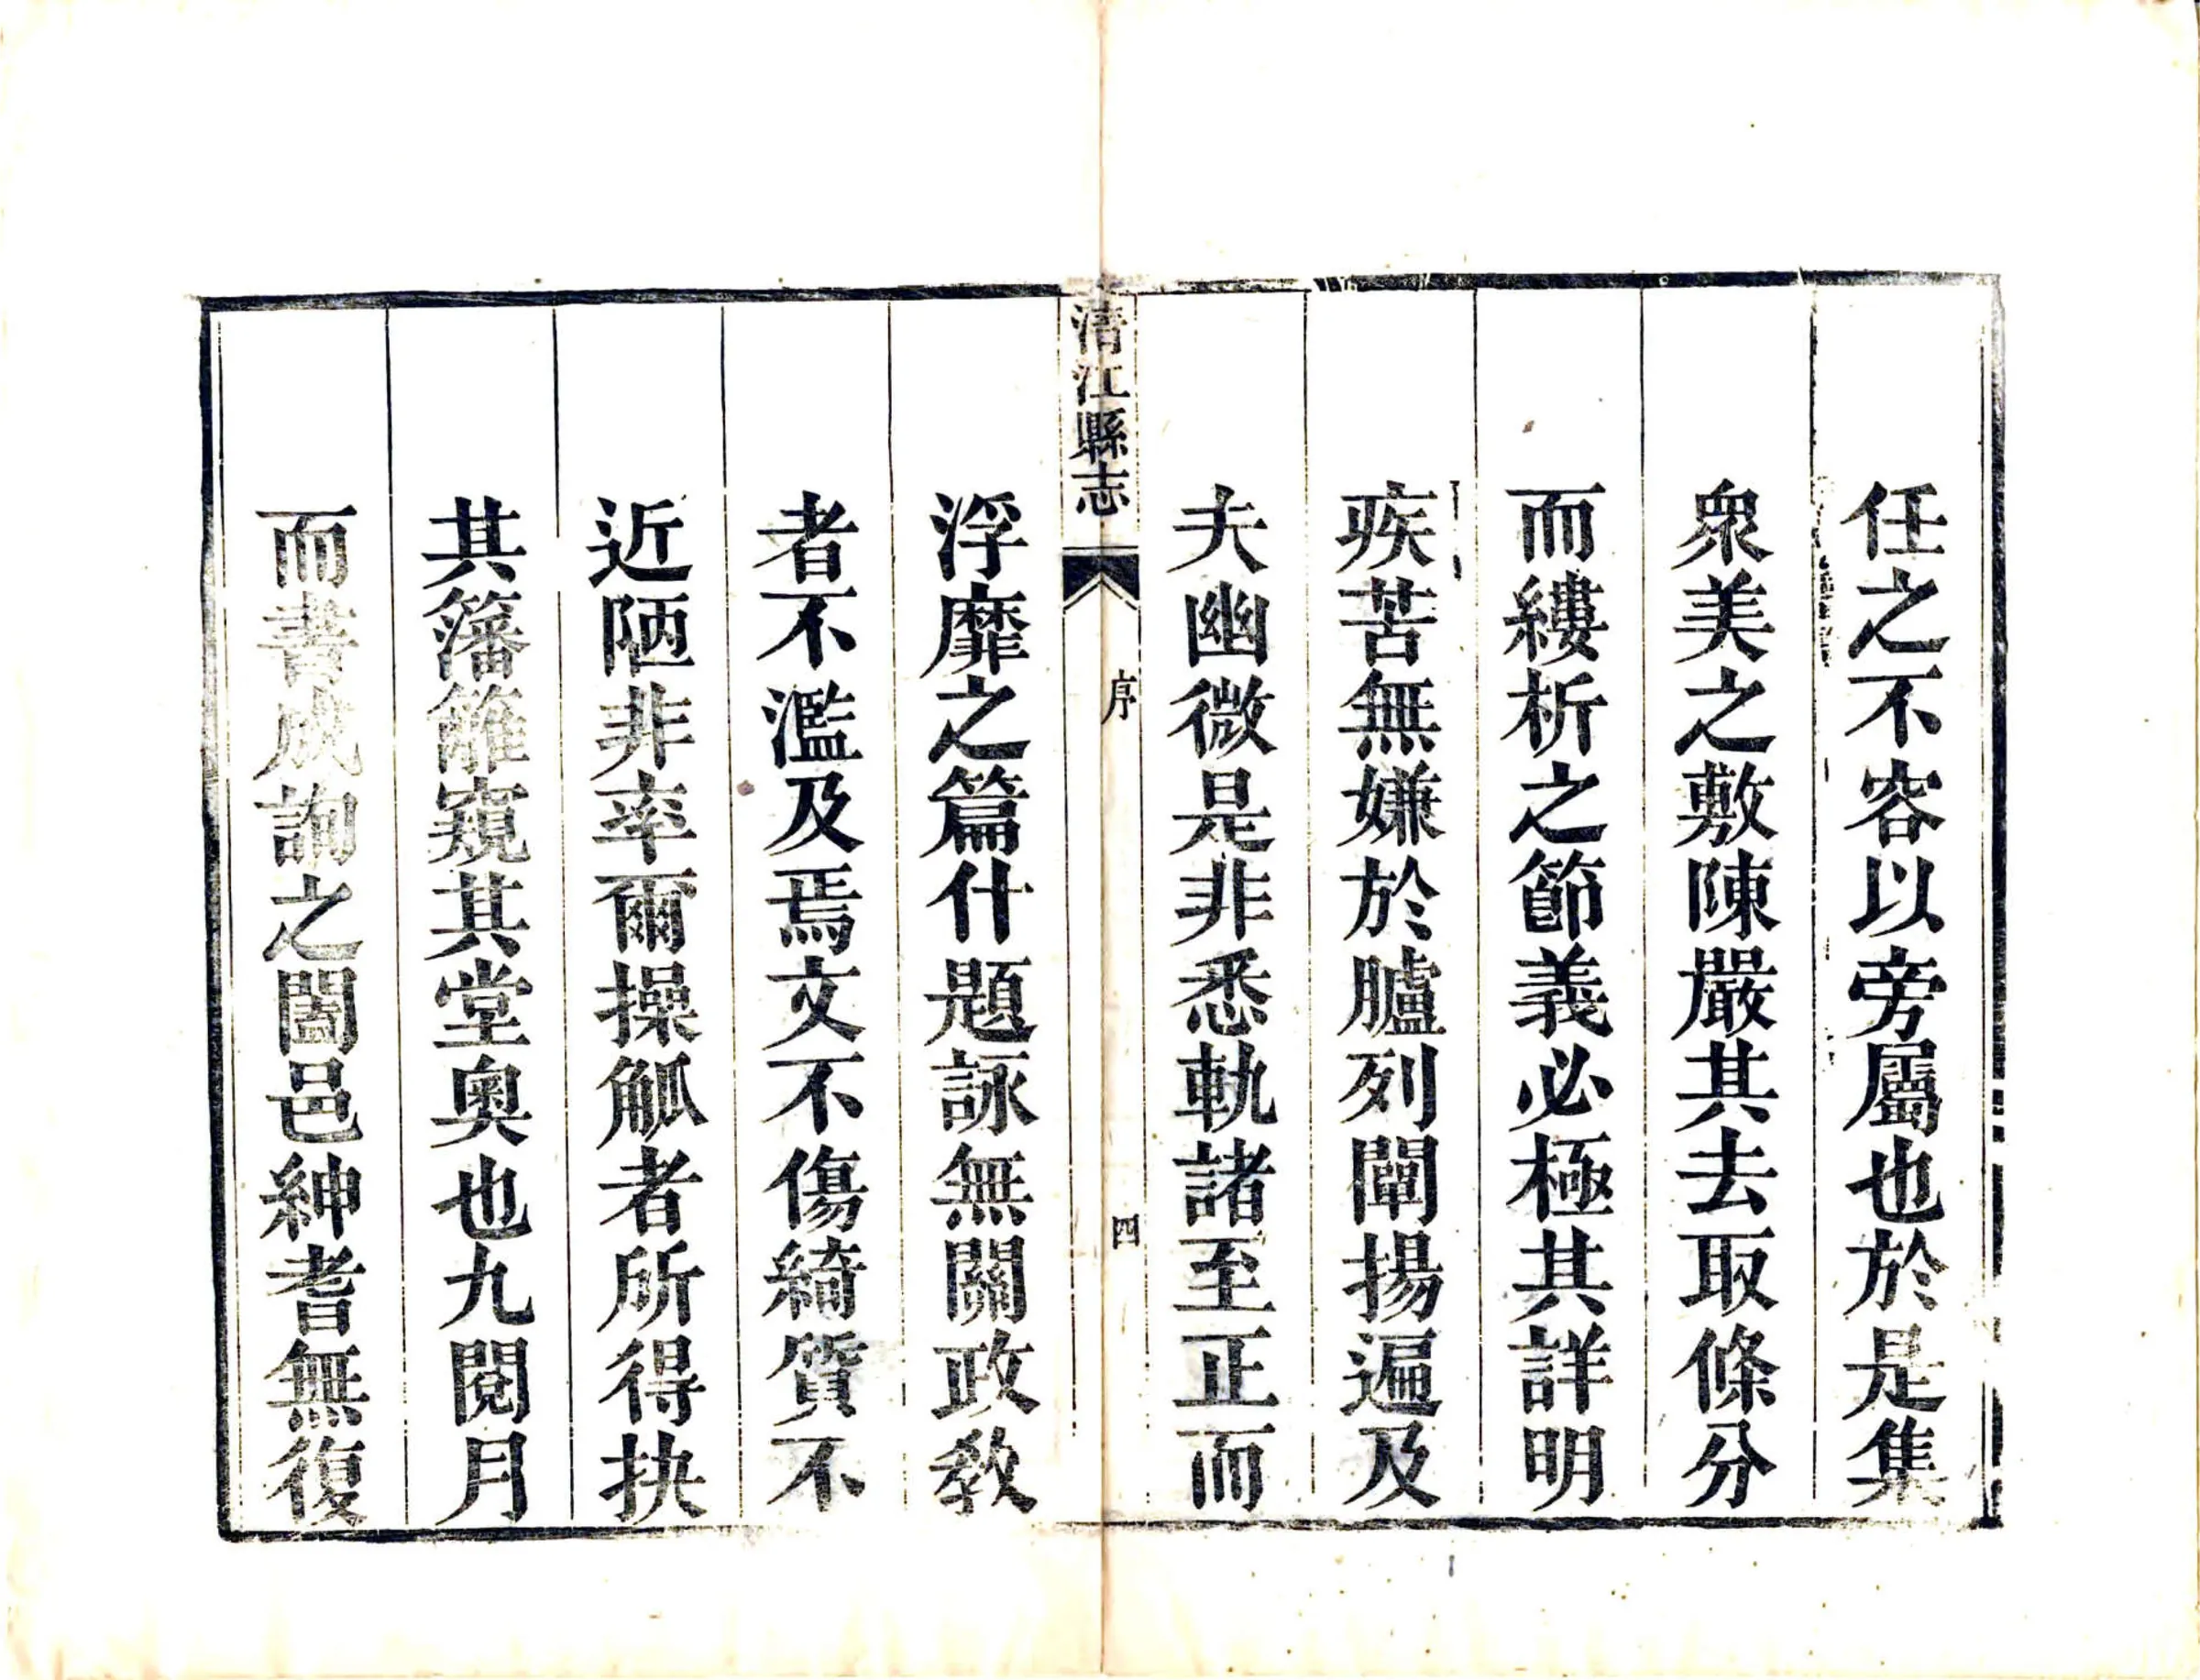 任之不容以旁屬也於是集
眾美之敷陳嚴其去取條分
而縷析之節義必極其詳明
疾苦無嫌於臚列闡揚遍及
夫幽微是非悉軌諸至正而
清江縣志
序
四
浮靡之篇什題詠無關政教
者不濫及焉文不傷綺質不
近陋非率爾操觚者所得抉
其籓籬窺其堂奧也九閱月
而書成詢之闔邑紳耆無復